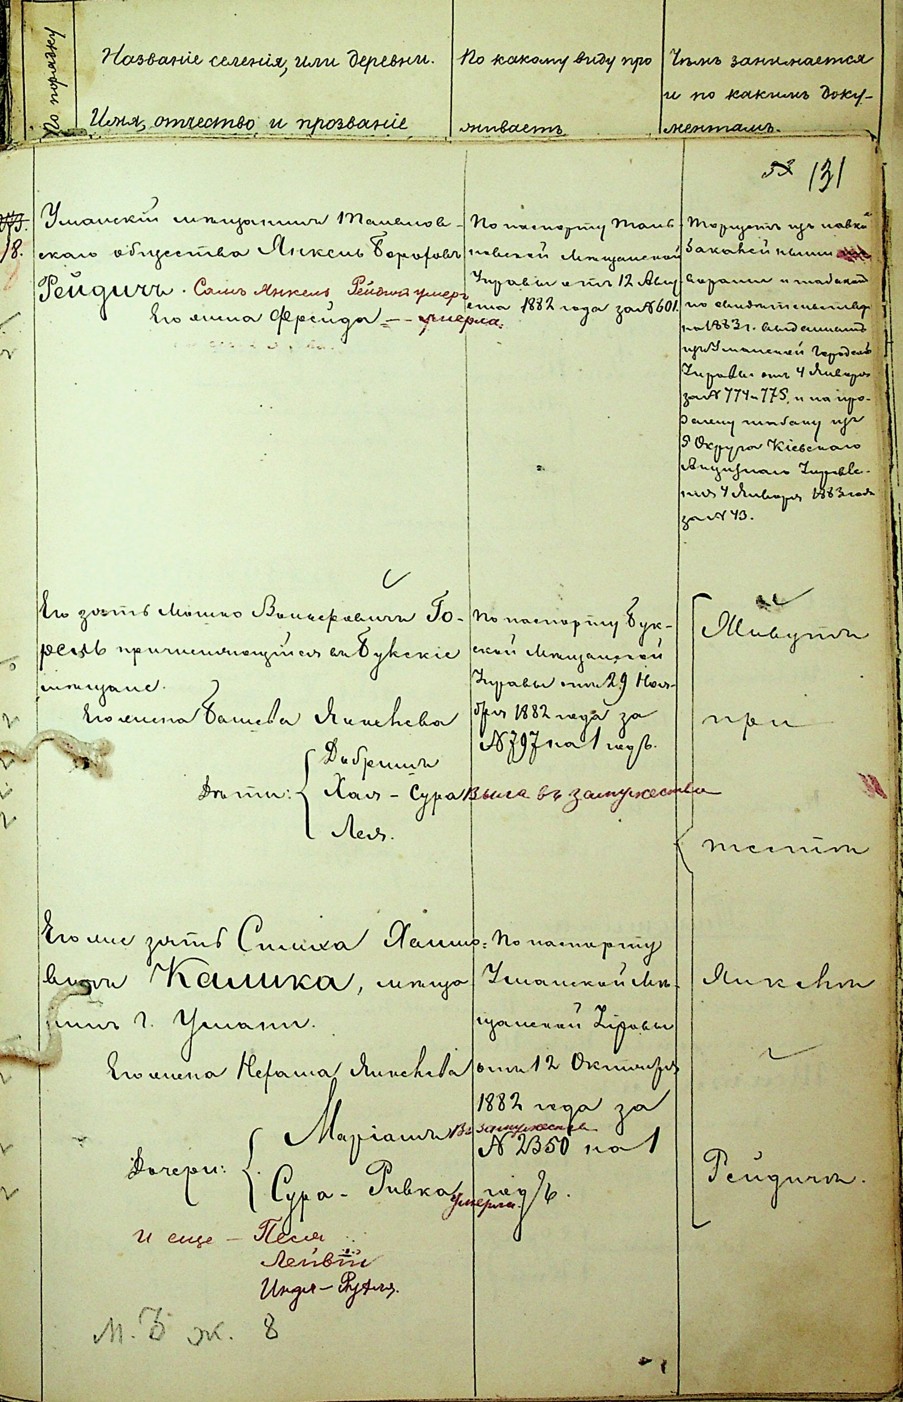 По порядку
Названіе селенія, или деревни.
Имя, отчество и прозваніе
По какому виду про
живаетъ
Чѣмъ занимается
и по какимъ доку-
ментамъ.
53 131
8.
Уманскій мѣщанинъ
скаго общества Янкель Бороховъ
Рейдичъ. Самъ Янкель Рейдичъ умеръ
Его жена Фрейда — умерла.
По паспорту
Мѣщанской
Управы отъ 12 Авгу
ста 1882 года за № 601.
Торгуетъ изъ лавки
бакалейными
варами и табакомъ
по свидѣтельствамъ
на 1883 г. выданнымъ
изъ Уманской Городск
Управы отъ 4 Января
за № 774 и 775, и на про-
дажу табаку изъ
5 Округа Кіевскаго
Акцизнаго Управле-
нія 4 Января 1883 года
за № 43.
Его зять Мошко Го-
рель причисляющійся въ Букскіе
мѣщане.
Его жена Башева Янкелева
Дѣти: Добришъ
Хая - Сура вышла въ замужество
Лея.
По паспорту Бук-
ской Мѣщанской
Управы отъ 29 Ноя-
бря 1882 года за
№ 797 на 1 годъ.
Живутъ
при
тестѣ
Янкелѣ
Рейдичѣ.
Его же зять Симха Хаимо-
вичъ Калика, мѣща
нинъ г. Умани.
Его жена Нехама Янкелева
Дочери: Маріамъ въ замужествѣ
Сура - Ривка умерла.
По паспорту
Уманской Мѣ-
щанской Управы
отъ 12 Октября
1882 года за
№ 2350 на 1
годъ.
и еще — Песя
Лейвій
Индя - Рухля.
М. 3 ж. 8